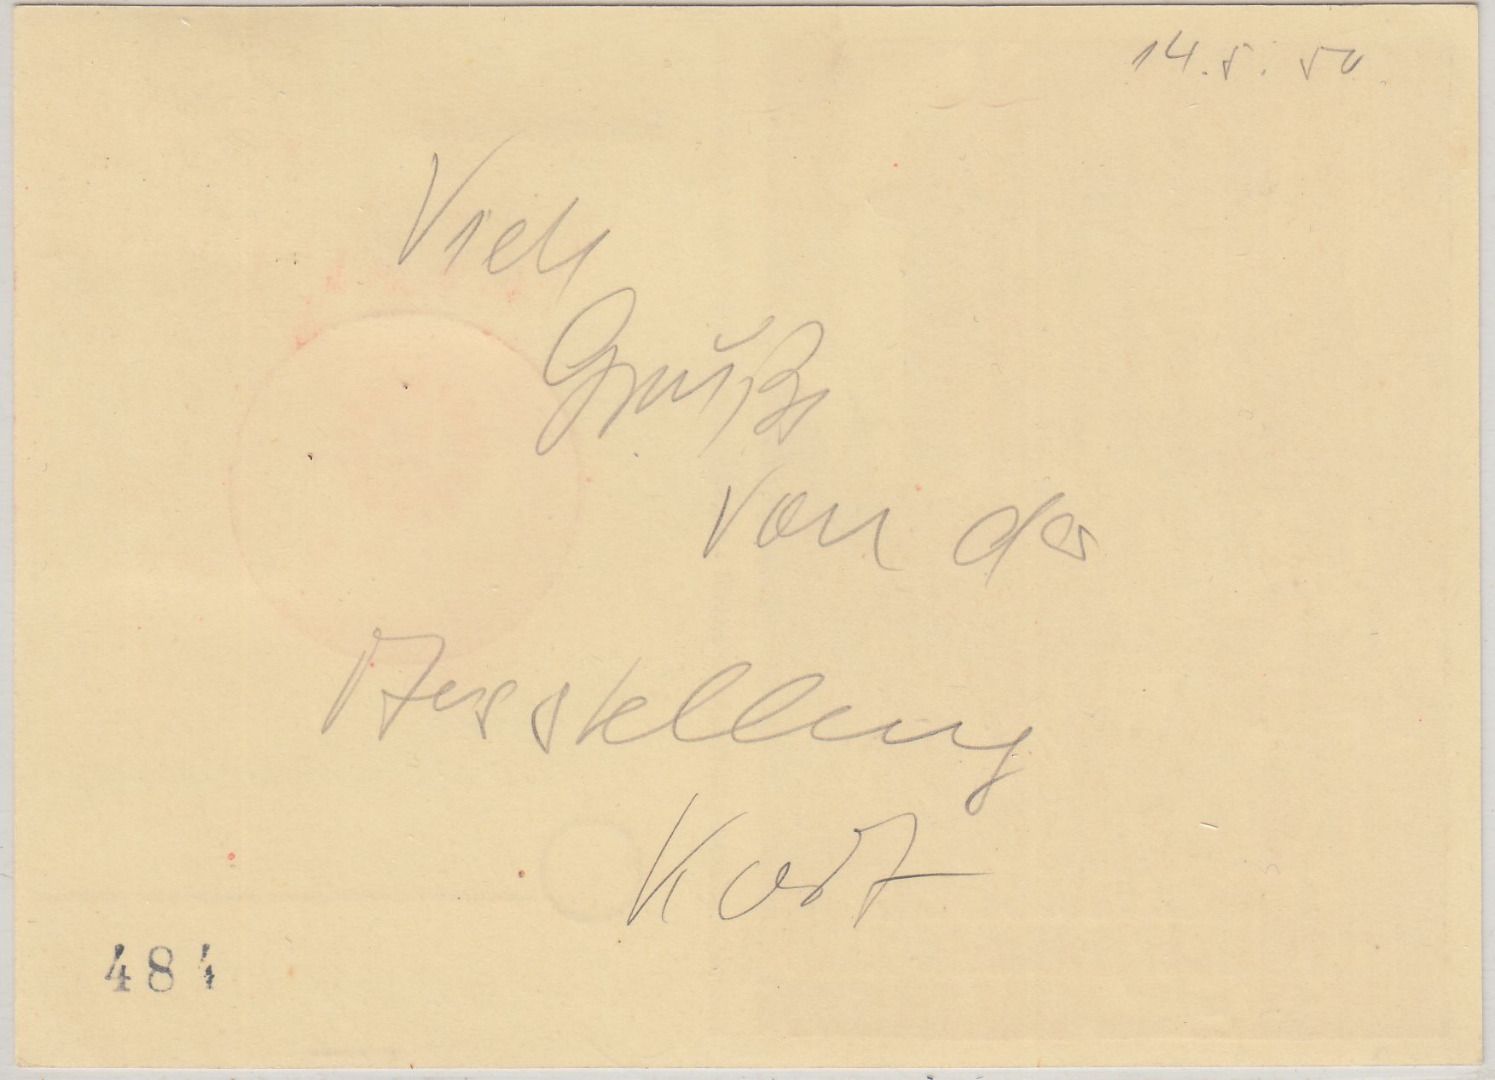 14.5.50
Viele
Grüße
von der
Ausstellung
Kurt
484